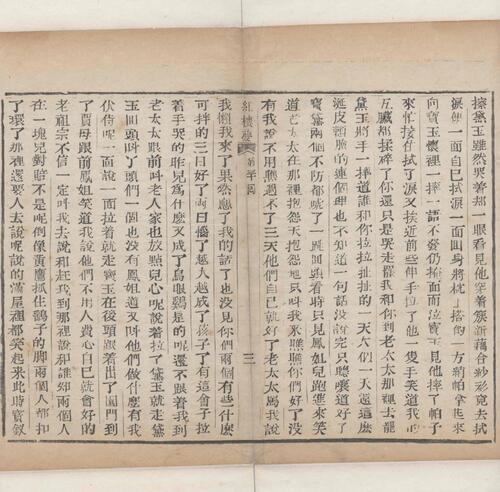 擦黛玉雖然哭着却一眼看見他穿着簇新藕合紗衫竟去拭
淚便一面自己拭淚一面回身將枕上搭的一方綃帕拿起來
向寶玉懷裡一摔一語不發仍掩面而泣寶玉見他摔了帕子
來忙接住拭了淚又挨近前些伸手拉了他一隻手笑道我的
五臟都揉碎了你還只是哭走罷我和你到老太太那裡去罷
黛玉將手一摔道誰和你拉拉扯扯的一天大似一天還這麼
涎皮賴臉的連個理也不知道一句話沒說完只聽嚷道好了
寶黛兩個不防都唬了一跳回頭看時只見鳳姐兒跑進來笑
道老太太在那裡抱怨天抱怨地只叫我來瞧瞧你們好了沒
有我說不用瞧過不了三天他們自己就好了老太太罵我說
紅樓夢 第三十回 三
我懶我來了果然應了我的話了也沒見你們兩個有些什麼
可拌的三日好了兩日惱了越大越成了孩子了有這會子拉
着手哭的昨兒爲什麼又成了烏眼鷄是的呢還不跟着我到
老太太跟前叫老人家也放點兒心呢說着拉了黛玉就走黛
玉回頭叫丫頭們一個也沒有鳳姐道又叫他們做什麼有我
伏侍呢一面說一面拉着就走寶玉在後頭跟着出了園門到
了賈母跟前鳳姐笑道我說他們不用人費心自己就會好的
老祖宗不信一定叫我去說和赶我到那裡說和誰知兩個人
在一塊兒對賠不是呢倒像黃鷹抓住鷂子的脚兩個人都扣
了環了那裡還要人去說呢說的滿屋裡都笑起來此時寶釵